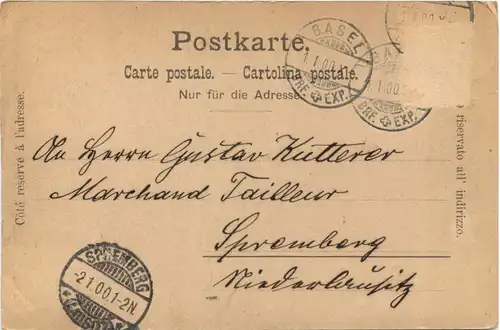 Postkarte.
Carte postale. — Cartolina postale.
Nur für die Adresse.
Côté réservé à l'adresse.
o riservato all' indirizzo.
BASEL
1.I.00
BRF. EXP.
BASEL
1.I.00
BRF. EXP.
An Herrn Gustav Kutterer
Marchand Tailleur
Spremberg
Niederlausitz
SPREMBERG
-2.1.00.1-2N.